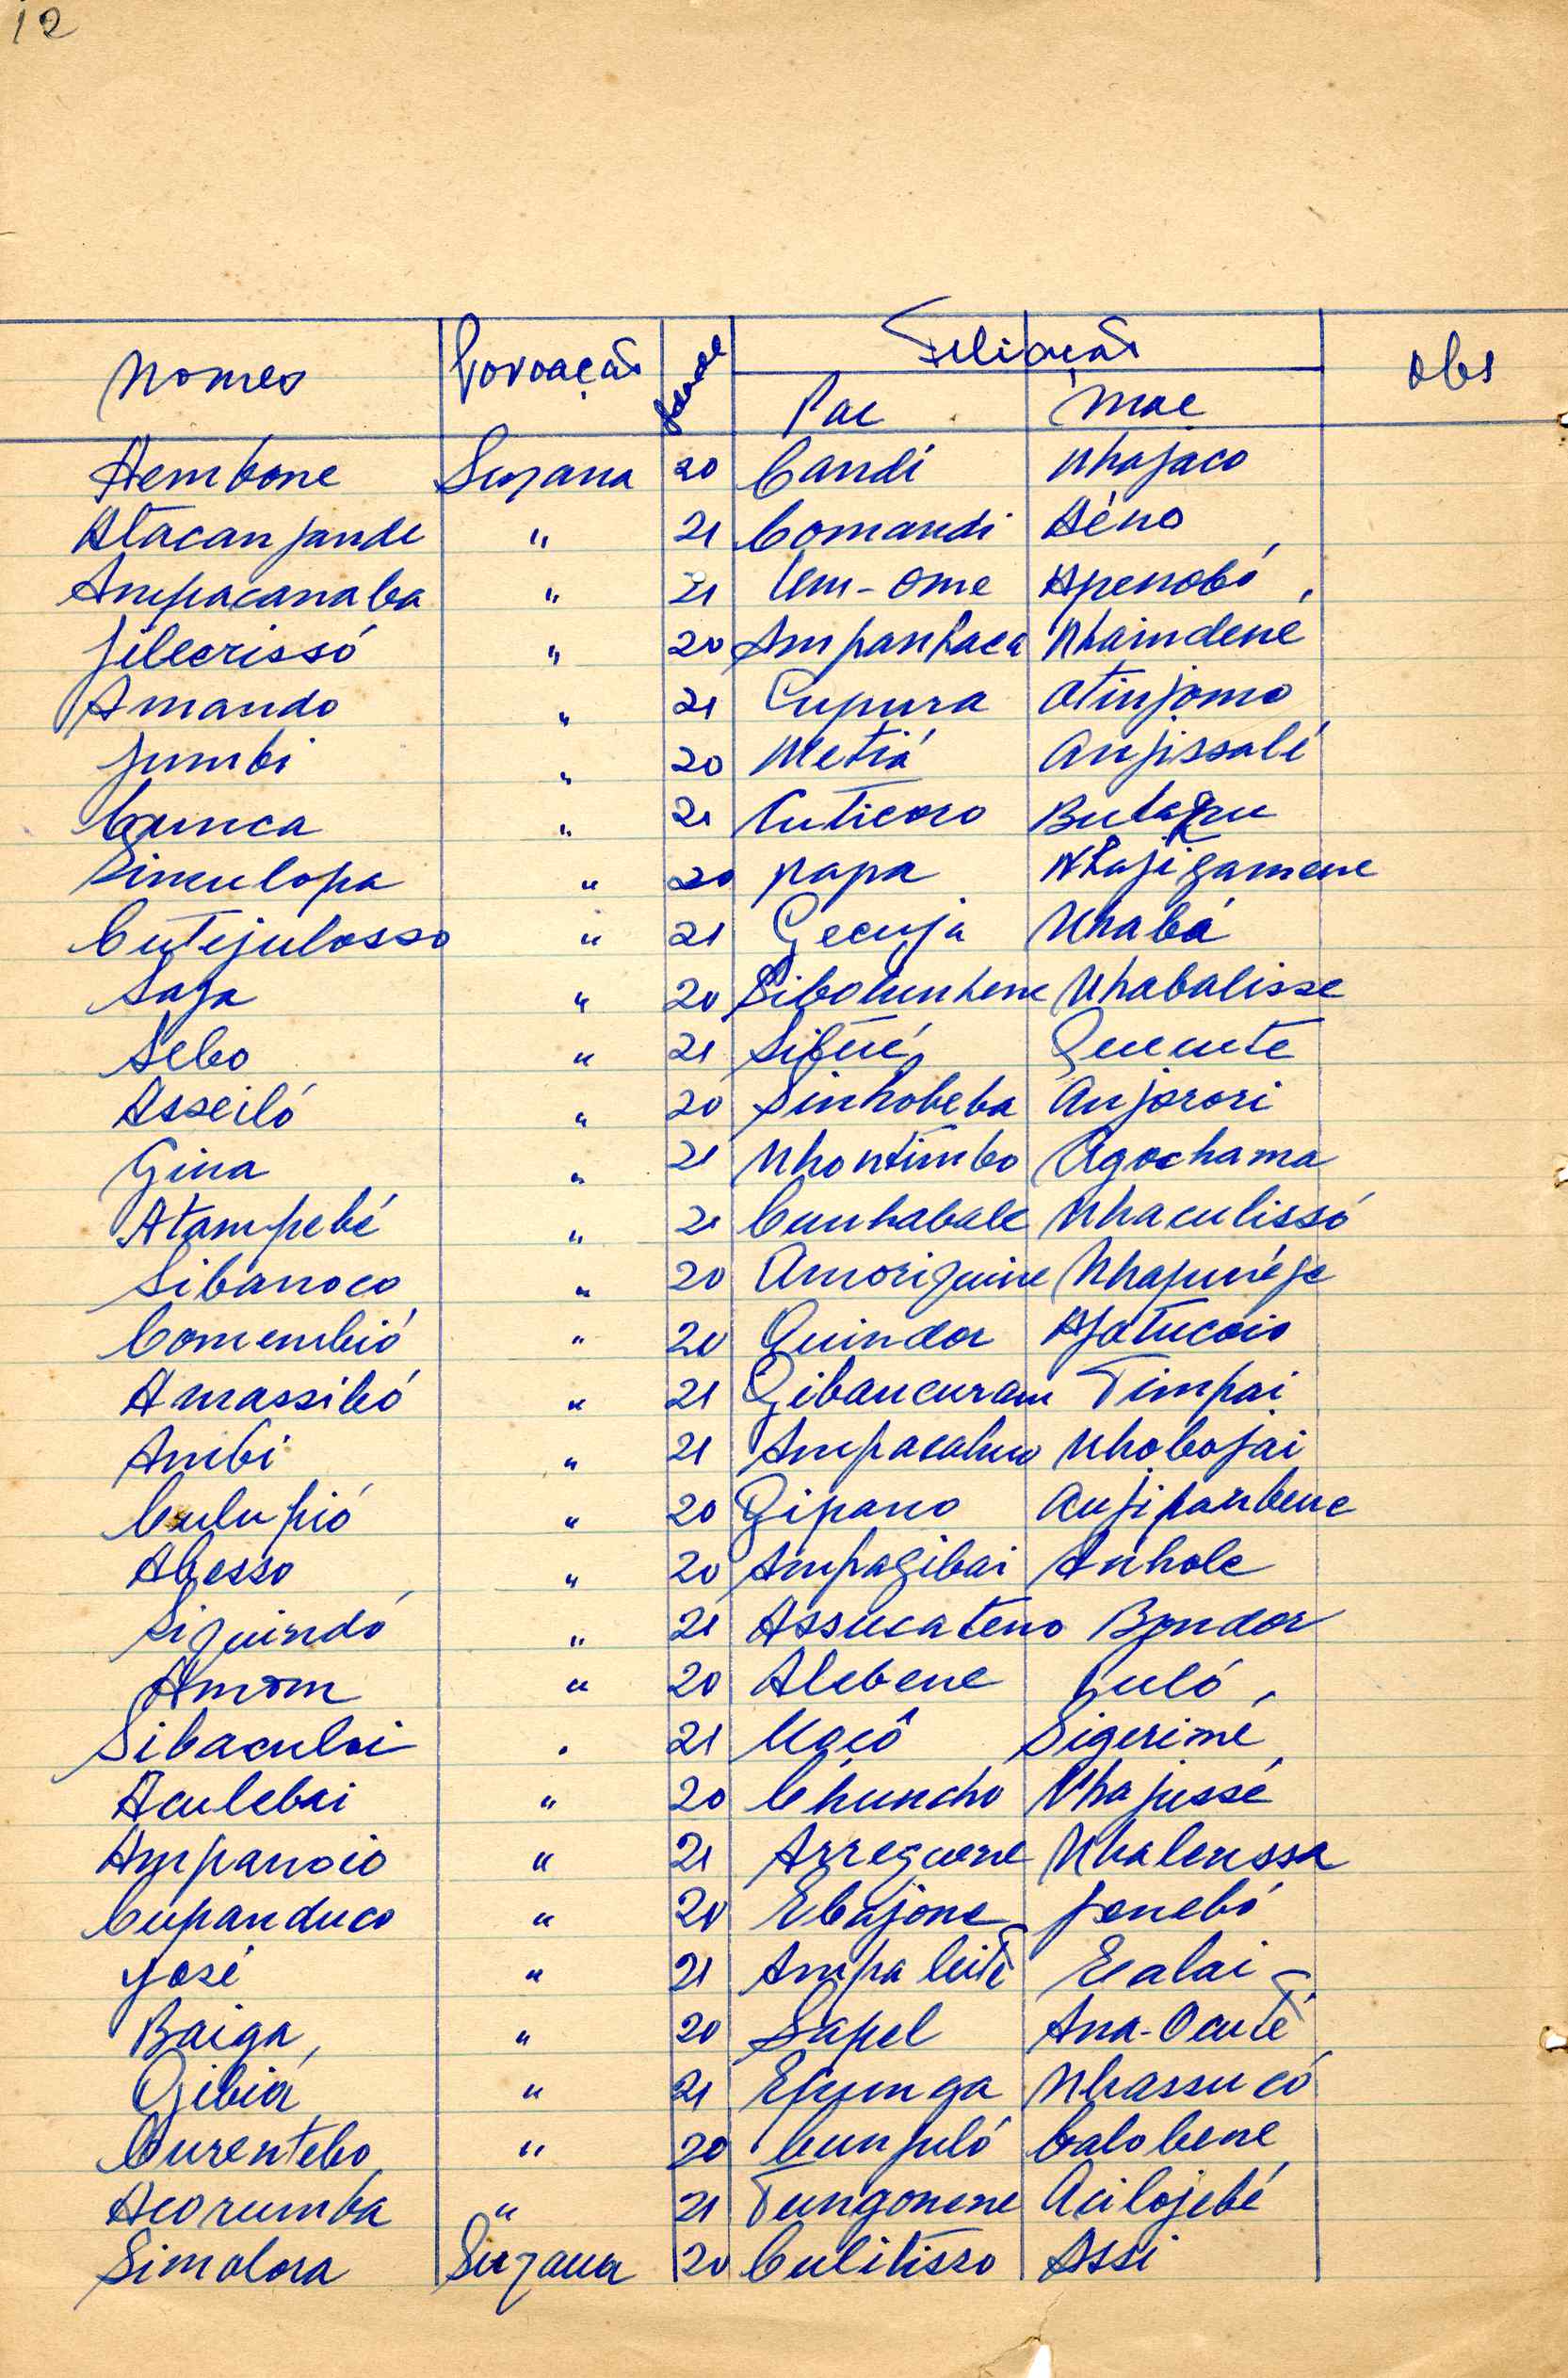 12
Nomes Povoação Idade Filiação Obs
Pae Mae
Aembone Suzana 20 Candi Nhajaco
Atacanjande " 21 Comandi Aéno
Ampacanaba " 21 Um-ome Apenobó
Jilecrissó " 20 Ampanhaca Nhaindené
Amando " 21 Cupura Atinjomo
Jumbi " 20 Metiá Anjissalé
Cunca " 21 Cuticoro
Sinculopa " 20 Papa Nhajigamene
Cutejulosso " 21 Gecuja Nhabá
Saja " 20 Sibolunhene Nhabalisse
Sebo " 21 Situé Quecute
Asseiló " 20 Sinhobeba Anjorori
Gina " 21 Nhontimbo Agochama
Atampebé " 21 Cunhabale Nhaculissó
Sibanoco " 20 Amoriguine Nhajunéje
Comembió " 20 Quindor Ajatucoio
Amassibó " 21 Gibancuram Timpai
Ambi " 21 Nhobojai
Culupió " 20 Gipano Anjipanbene
Abesso " 20 Ampagibai Anhole
Siguindó " 21 Assucateno Bondor
Amom " 20 Alebene Juló
Sibaculoi " 21 Macô Sigerimé
Aculebai " 20 Chuncho Nhajussé
Ampanoio " 21 Arreguene Nhalenssa
Cupanduco " 20 Ebajone Jenebó
José " 21 Ampa leite Ecalai
Baiga " 20 Sapel Ana-Ocuté
Gibiá " 21 Ejunga Nhassucó
Curentebo " 20 Cunpuló Calobene
Acorumba " 21 Tungonene Acilojebé
Simolora Suzana 20 Culitisso Assi